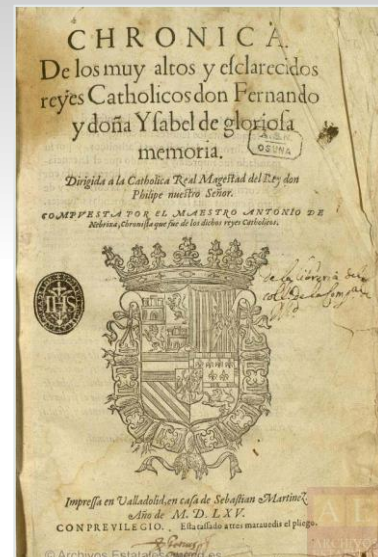 CHRONICA.
De los muy altos y esclarecidos
reyes Catholicos don Fernando
y doña Ysabel de gloriosa
memoria.
OSUNA
Dirigida a la Catholica Real Magestad del Rey don
Philipe nuestro Señor.
COMPVESTA POR EL MAESTRO ANTONIO DE
Nebrixa, Chronista que fue de los dichos reyes Catholicos.
IHS
Impressa en Valladolid, en casa de Sebastian Martinez
Año de M. D. LXV.
CON PREVILEGIO. Esta tassado a tres maravedis el pliego.
© Archivos Estatales
ARCHIVO